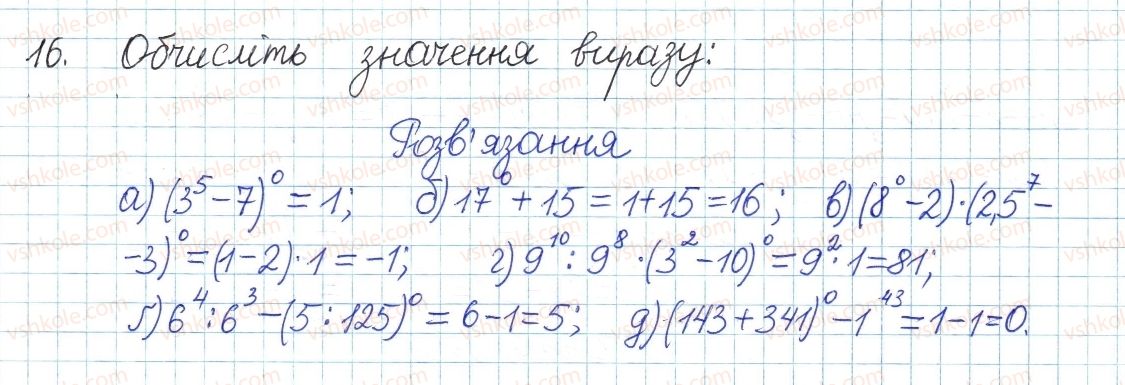 16. Обчисліть значення виразу:
Розв'язання
а) (3⁵ – 7)⁰ = 1; б) 17⁰ + 15 = 1 + 15 = 16; в) (8⁰ – 2) · (2,5⁷ –
– 3)⁰ = (1 – 2) · 1 = –1; г) 9¹⁰ : 9⁸ · (3² – 10)⁰ = 9² · 1 = 81;
ґ) 6⁴ : 6³ – (5 : 125)⁰ = 6 – 1 = 5; д) (143 + 341)⁰ – 1⁴³ = 1 – 1 = 0.